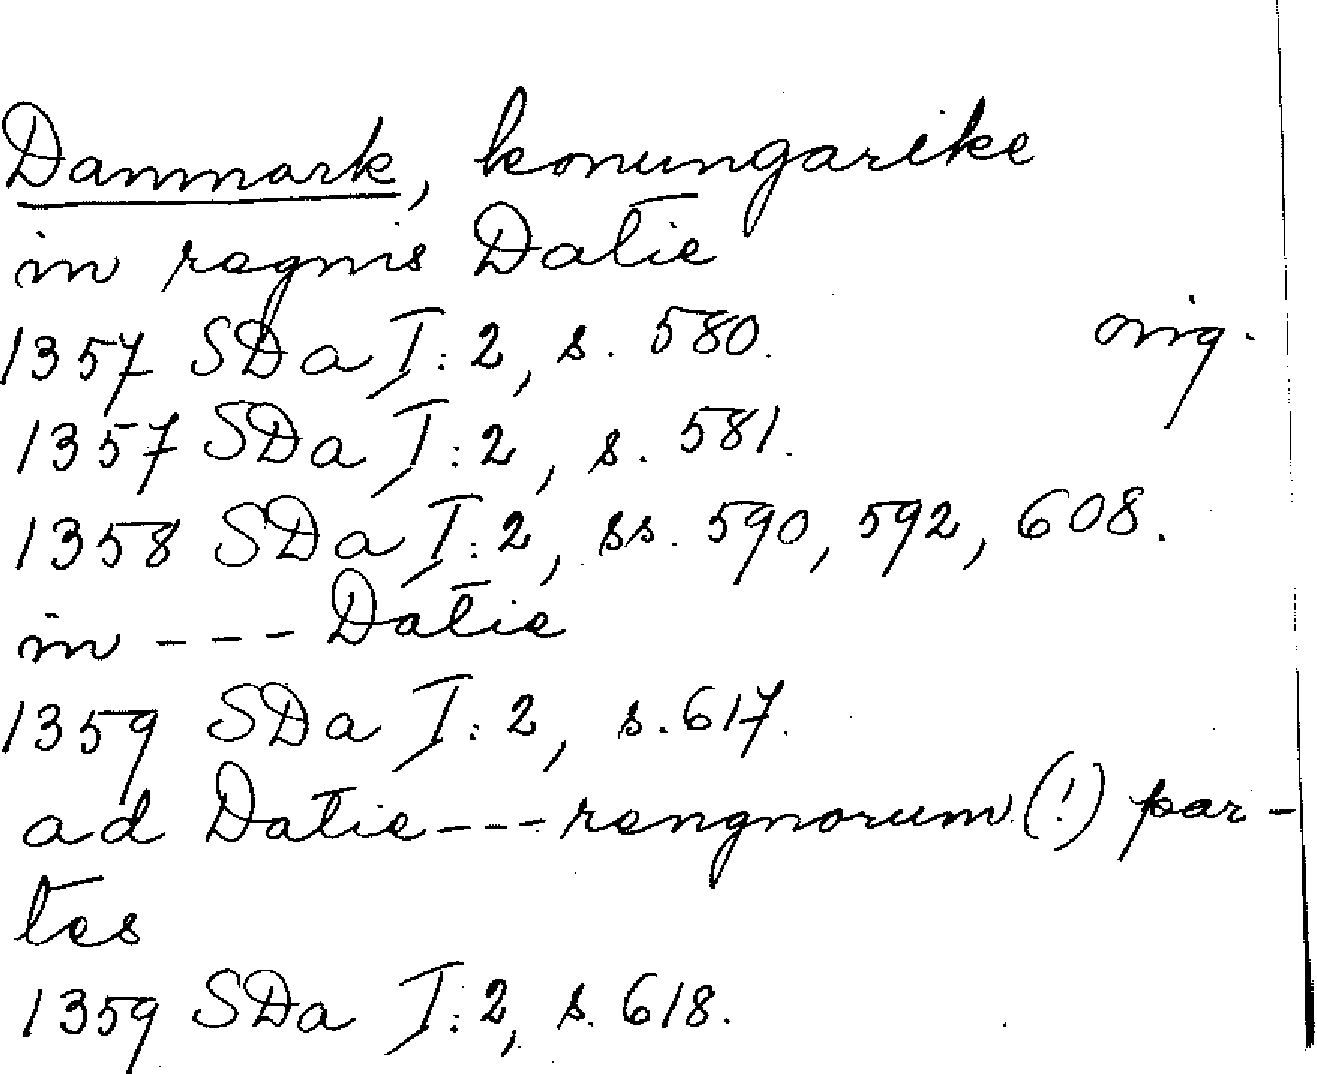 Danmark, konungarike
in regnis Datie
1357 SDa I:2, s. 580. orig.
1357 SDa I:2, s. 581.
1358 SDa I:2, ss. 590, 592, 608.
in --- Datie
1359 SDa I:2, s. 617.
ad Datie --- rengnorum (!) par-
tes
1359 SDa I:2, s. 618.